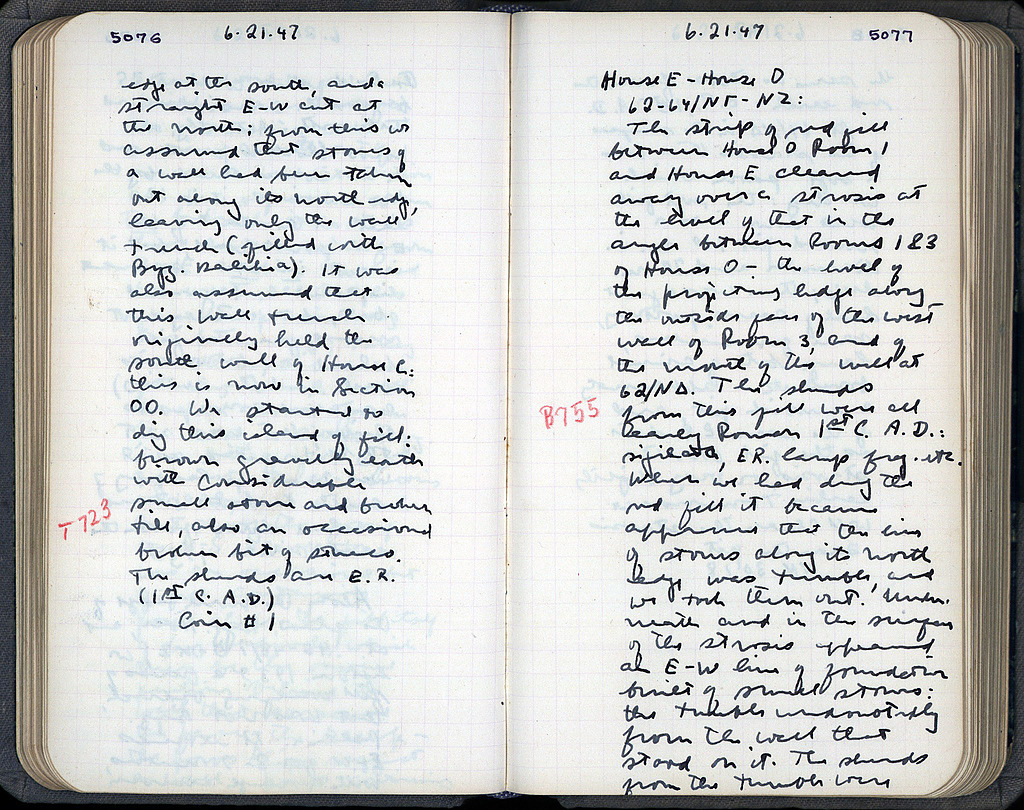 5076
6·21·47
edge at the south, and a
straight E-W cut at
the north; from this we
assumed that stones of
a wall had been taken
out along its north edge,
leaving only the wall
trench (filled with
Byz. ). It was
also assumed that
this wall trench
originally held the
south wall of House C:
this is now in Section
OO. We started to
dig this island of fill:
brown gravelly earth
with considerable
small stone and broken
tile, also an occasional
broken bit of stucco.
T 723
The sherds are E.R.
(1st C. A.D.)
Coin #1
6·21·47
5077
House E - House O
62-64/ΝΓ - ΝΖ:
The strip of red fill
between House O Room 1
and House E cleared
away over a strosis at
the level of that in the
angle between Rooms 1 & 3
of House O - the level of
the projecting ledge along
the outside face of the west
wall of Room 3, and of
the mouth of the well at
62/ΝΔ. The sherds
B755
from this fill were all
early Roman 1st C. A.D.:
sigillata, ER. lamp frg. etc.
When we had dug the
red fill it became
apparent that the line
of stones along its north
edge was tumble, and
we took them out. Under-
neath and in the surface
of the strosis appeared
an E-W line of foundation
built of small stones:
the tumble undoubtedly
from the wall that
stood on it. The sherds
from the tumble were